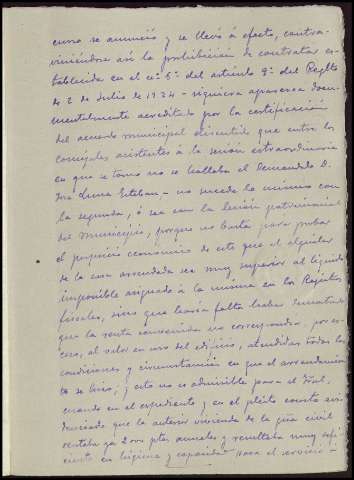 curso se anunció y se llevó á efecto, contra-
viniéndose así la prohibición de contratar es-
tablecida en el nº 5º del artículo 9º del Reglto
de 2 de Julio de 1924 - siquiera aparezca docu-
mentalmente acreditado por la certificación
del acuerdo municipal discutido que entre los
concejales asistentes á la sesión extraordinaria
en que se tomó no se hallaba el demandado D.
José Luna Esteban - no sucede lo mismo con
la segunda, ó sea con la lesión patrimonial
del Municipio, porque no basta para probar
el perjuicio económico de este que el alquiler
de la casa arrendada sea muy superior al líquido
imponible asignado á la misma en los Registros
fiscales, sino que hacía falta haber demostrado
que la renta convenida no correspondía, por ex-
ceso, al valor en uso del edificio, atendidas todas las
condiciones y circunstancias en que el arrendamien-
to se hizo; y esto no es admisible para el Tral.
cuando en el expediente y en el pleito consta evi-
denciado que la anterior vivienda de la guª civil
rentaba ya 2000 ptas anuales y resultaba muy defi-
ciente en higiene y capacidad para el servicio -